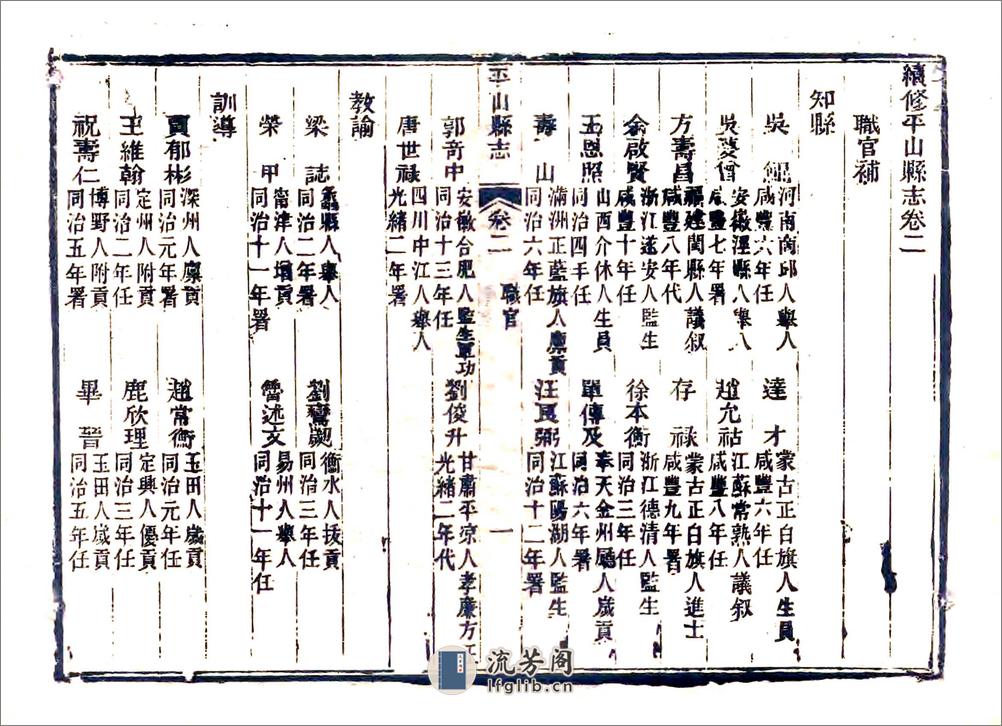 續修平山縣志卷二
職官補
知縣
吳 河南商邱人舉人 咸豐六年任 達才 蒙古正白旗人生員 咸豐六年任
吳僧 安徽涇縣人舉人 咸豐七年署 趙允祜 江蘇常熟人議叙 咸豐八年任
方壽昌 福建閩縣人議叙 咸豐八年代 存祿 蒙古正白旗人進士 咸豐九年署
余啟賢 浙江遂安人監生 咸豐十年任 徐本衡 浙江德清人監生 同治三年任
王恩照 山西介休人生員 同治四年任 單傳及 奉天金州廳人歲貢 同治六年署
壽山 滿洲正藍旗人廩貢 同治六年任 汪良弼 江蘇陽湖人監生 同治十二年署
平山縣志 卷二 職官 一
郭奇中 安徽合肥人監生軍功 同治十三年任 劉俊升 甘肅平凉人孝廉方 光緒二年代
唐世祿 四川中江人舉人 光緒二年署
教諭
梁誌 蠡縣人舉人 同治二年署 劉鸞翽 衡水人拔貢 同治三年任
榮甲 甯津人增貢 同治十一年署 雷述文 易州人舉人 同治十一年任
訓導
賈郁彬 深州人廩貢 同治元年署 趙常衡 玉田人歲貢 同治元年任
王維翰 定州人附貢 同治二年任 鹿欣理 定興人優貢 同治三年任
祝壽仁 博野人附貢 同治五年署 畢晉 玉田人歲貢 同治五年任
流芳阁
lfglib.cn